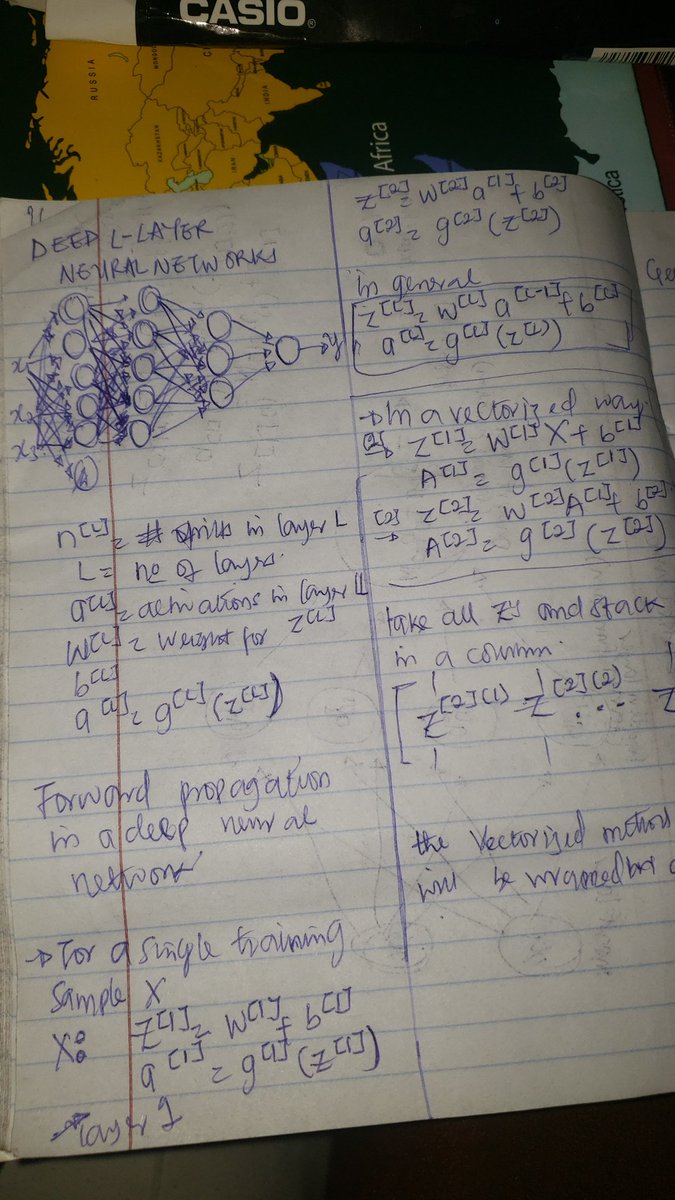 CASIO
RUSSIA
KAZAKHSTAN
IRAN
INDIA
Africa
91
DEEP L-LAYER
NEURAL NETWORKS
x₁
x₂
x₃
ŷ
n[L] = # units in layer L
L = no of layers.
a[L] = activations in layer L
W[L] = weight for Z[L]
b[L]
a[L] = g[L] (Z[L])
Forward propagation
in a deep neural
network
→ For a single training
Sample X
X: Z[1] = W[1] + b[1]
a[1] = g[1] (Z[1])
→ layer 1
Z[2] = W[2] a[1] + b[2]
a[2] = g[2] (Z[2])
in general
Z[L] = W[L] a[L-1] + b[L]
a[L] = g[L] (Z[L])
→ In a vectorized way
[1] → Z[1] = W[1] X + b[1]
A[1] = g[1] (Z[1])
[2] → Z[2] = W[2] A[1] + b[2]
A[2] = g[2] (Z[2])
take all Zs and stack
in a column
Z[2](1) Z[2](2) ... Z
the vectorized method
will be